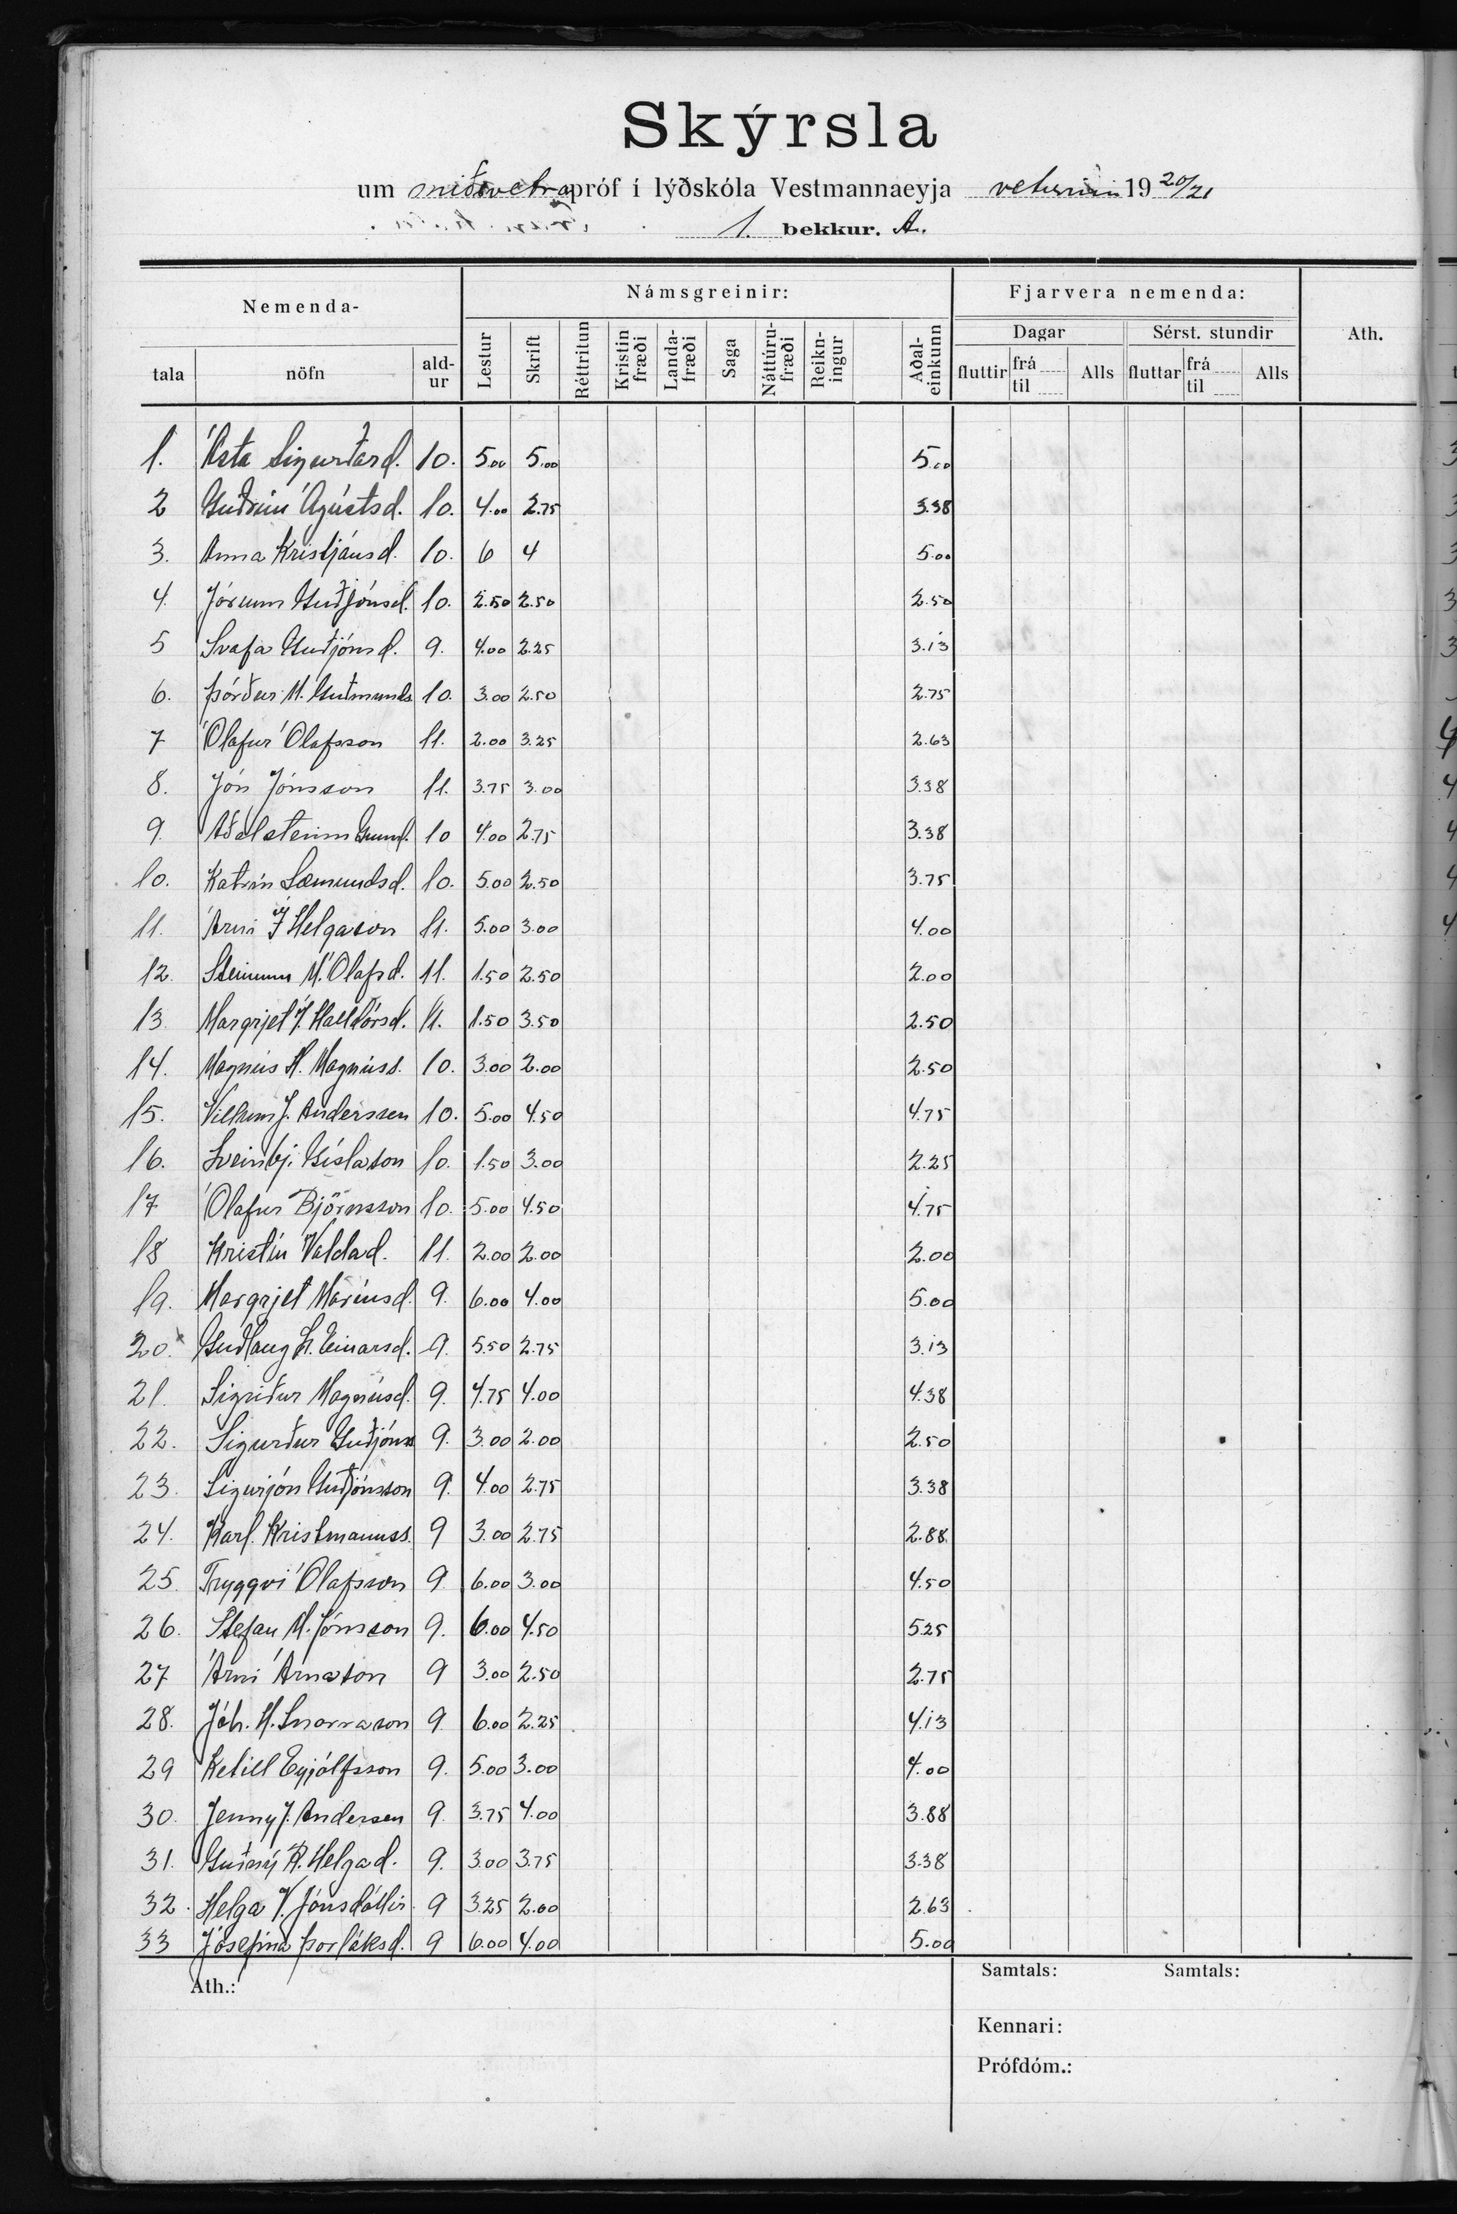 Skýrsla
um miðsvetrarpróf í lýðskóla Vestmannaeyja veturinn 1920/21
1. bekkur. A.
Nemenda-
Námsgreinir:
Fjarvera nemenda:
Ath.
tala nöfn ald-ur Lestur Skrift Réttritun Kristin fræði Landa-fræði Saga Náttúru-fræði Reikn-ingur Aðal-einkunn
Dagar Sérst. stundir
fluttir frá til Alls fluttar frá til Alls
1. Kata Sigurðard. 10. 5.00 5.00 5.00
2 Guðrún Ágústsd. 10. 4.00 2.75 3.38
3. Anna Kristjánsd. 10. 6 4 5.00
4. Jórunn Guðjónsd. 10. 2.50 2.50 2.50
5 Svafa Guðjónsd. 9. 4.00 2.25 3.13
6. Þórður M. Guðmunds 10. 3.00 2.50 2.75
7 Ólafur Ólafsson 11. 2.00 3.25 2.63
8. Jón Jónsson 11. 3.75 3.00 3.38
9. Aðalsteinn Gunnl. 10 4.00 2.75 3.38
10. Katrín Sæmundsd. 10. 5.00 2.50 3.75
11. Árni J Helgason 11. 5.00 3.00 4.00
12. Steinunn M. Ólafsd. 11. 1.50 2.50 2.00
13. Margrjet J. Halldórsd. 11. 1.50 3.50 2.50
14. Magnús H. Magnúss. 10. 3.00 2.00 2.50
15. Vilhelm J. Anderssen 10. 5.00 4.50 4.75
16. Sveinbj. Gíslason 10. 1.50 3.00 2.25
17 Ólafur Björnsson 10. 5.00 4.50 4.75
18 Kristín Valdad. 11. 2.00 2.00 2.00
19. Margrjet Maríusd. 9. 6.00 4.00 5.00
20. Guðlaug L. Einarsd. 9. 5.50 2.75 3.13
21. Sigríður Magnúsd. 9. 4.75 4.00 4.38
22. Sigurður Guðjónss 9. 3.00 2.00 2.50
23. Sigurjón Guðjónsson 9. 4.00 2.75 3.38
24. Karl Kristmannss. 9 3.00 2.75 2.88
25. Tryggvi Ólafsson 9 6.00 3.00 4.50
26. Stefan M. Jónsson 9. 6.00 4.50 525
27 Árni Árnason 9 3.00 2.50 2.75
28. Jóh. H. Snorrason 9. 6.00 2.25 4.13
29 Ketill Eyjólfsson 9. 5.00 3.00 4.00
30. Jenny J. Andersen 9. 3.75 4.00 3.88
31. Guðný R. Helgad. 9. 3.00 3.75 3.38
32. Helga V. Jónsdóttir 9 3.25 2.00 2.63
33 Jósefína Þorláksd. 9 6.00 4.00 5.00
Ath.:
Samtals: Samtals:
Kennari:
Prófdóm.: